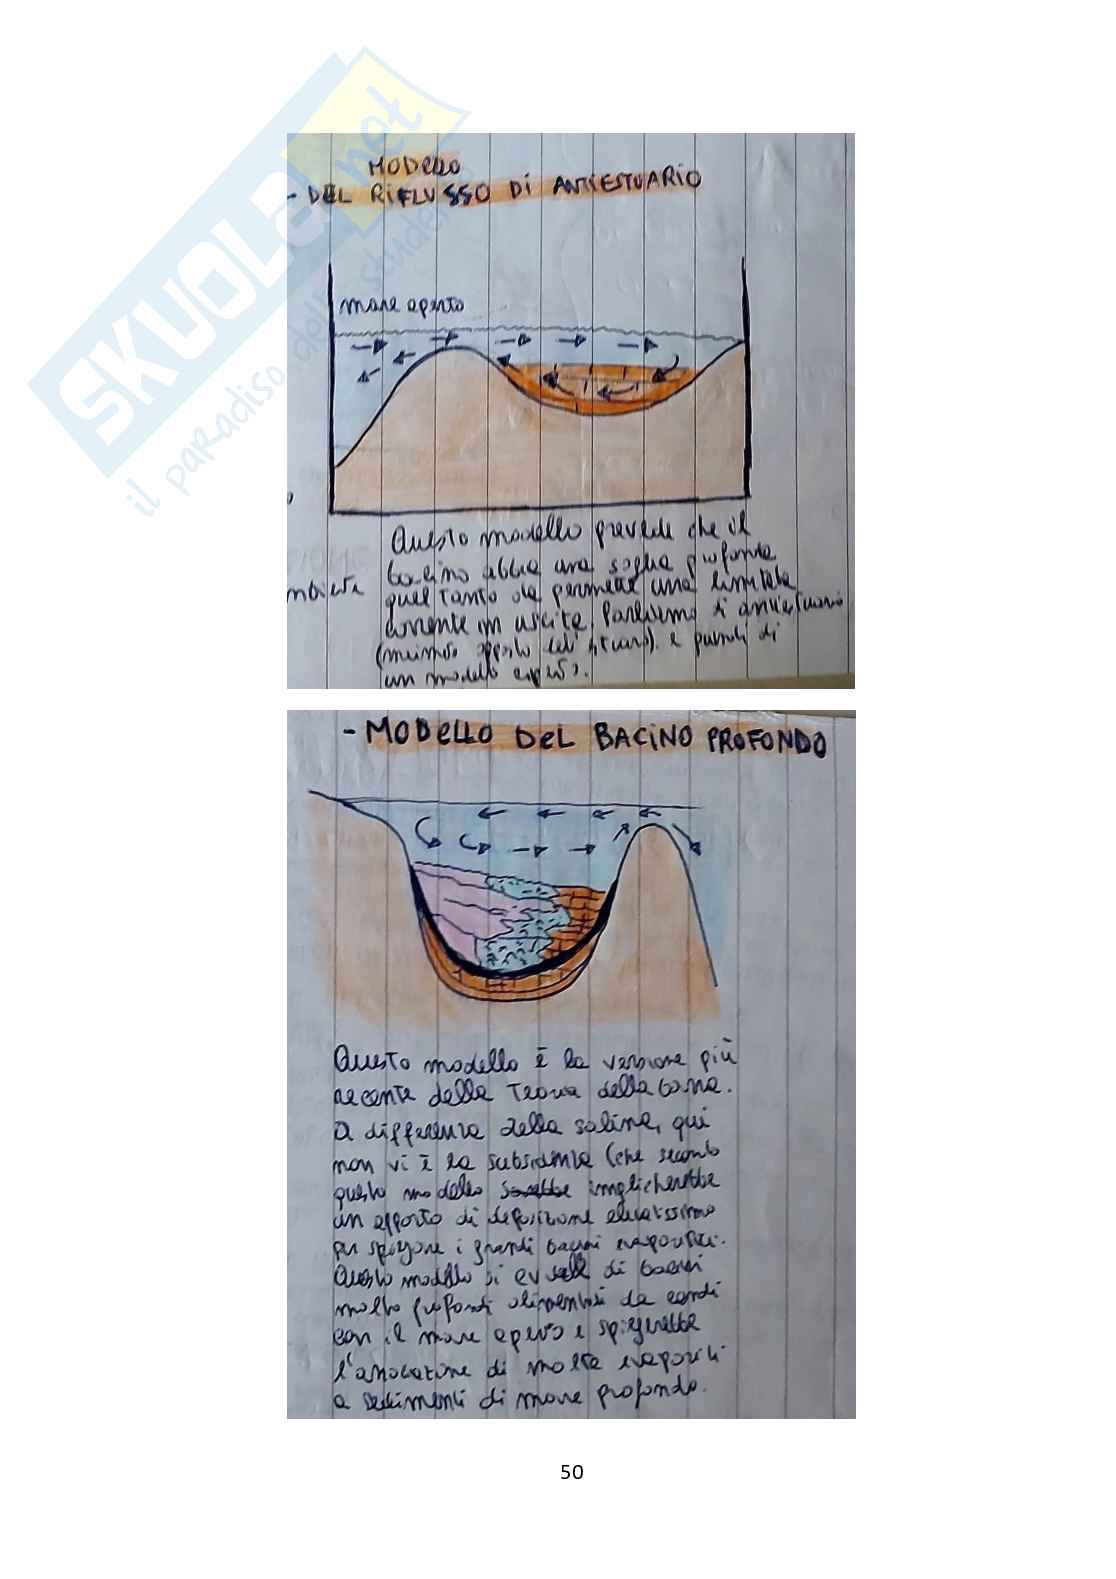 SKUOLA.net
il paradiso dello studente
MODELLO
- DEL RIFLUSSO DI ANTIESTUARIO
mare aperto
Questo modello prevede che il
bacino abbia una soglia profonda
quel tanto da permette una limitata
corrente in uscita. Parliamo di antiestuario
e quindi di
un modello aperto.
- MODELLO DEL BACINO PROFONDO
Questo modello è la versione più
recente della Teoria della barra.
A differenza delle saline, qui
non vi è la subsidenza (che secondo
questo modello implicherebbe
un apporto di deposizione elevatissimo
per spiegare i grandi bacini evaporitici.
Questo modello si di bacini
molto profondi alimentati da canali
con il mare aperto e spiegherebbe
l'associazione di molte evaporiti
a sedimenti di mare profondo.
50